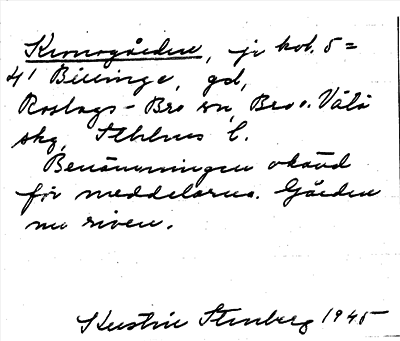 Kronogården, jr kol. 5 =
41 Billinge, gd,
Roslags-Bro sn, Bro o. Vätö
skg, Sthlms l.
Benämningen okänd
för meddelarna. Gården
nu riven.
Kerstin Stenberg 1945